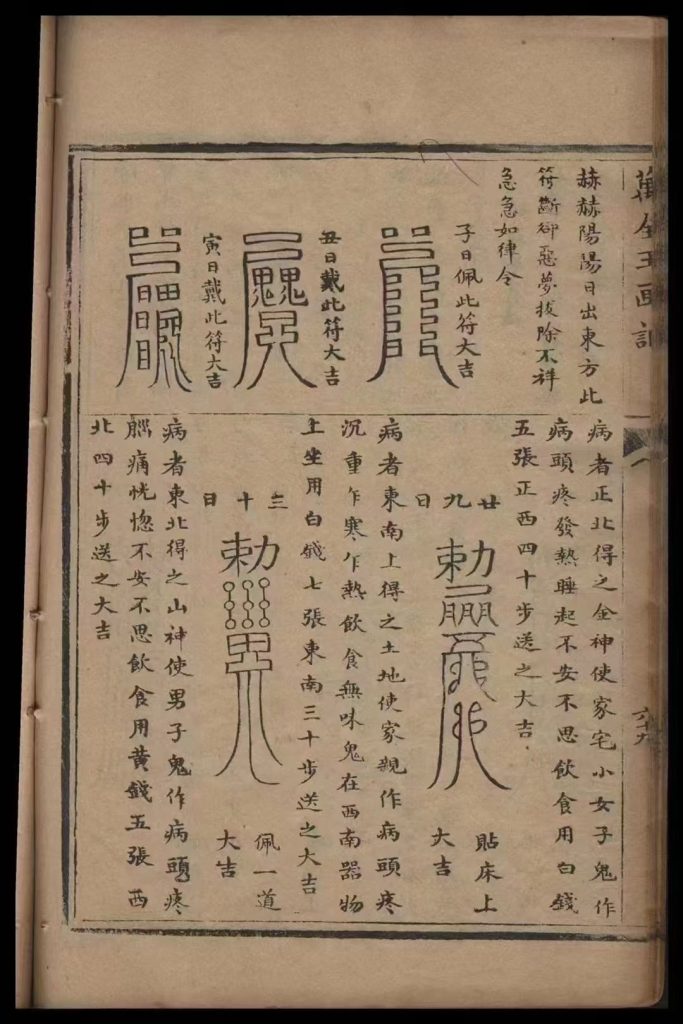 萬全玉匣記
六十九
赫赫陽陽日出東方此
符斷卻惡夢拔除不祥
急急如律令
子日佩此符大吉
丑日戴此符大吉
寅日戴此符大吉
病者正北得之全神使家宅小女子鬼作
病頭疼發熱睡起不安不思飲食用白錢
五張正西四十步送之大吉
廿九日
勅
貼床上
大吉
病者東南上得之土地使家親作病頭疼
沉重乍寒乍熱飲食無味鬼在西南器物
上坐用白錢七張東南三十步送之大吉
三十日
勅
佩一道
大吉
病者東北得之山神使男子鬼作病頭疼
腦痛恍惚不安不思飲食用黃錢五張西
北四十步送之大吉